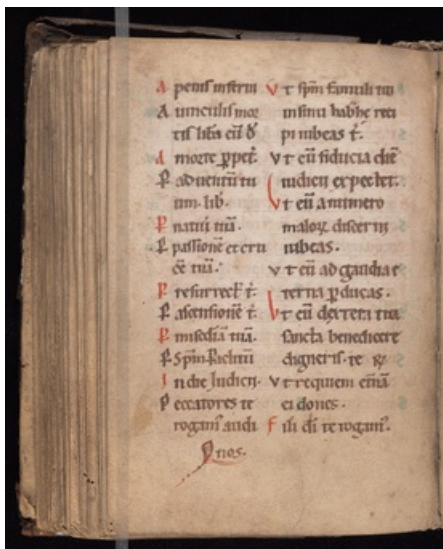 A penis inferni
A uinculis mor
tis lib̄a eū d̄
A morte ꝑpet.
P aduentū tu
um. lib.
P natiui tuā.
P passionē et cru
cē tuā.
P resurrect̄ t̄.
P ascensionē t̄.
P misc̄diā tuā.
P Sp̄m
I n die Iudicij.
P eccatores te
rogam᷒ audi
nos.
V t sp̄m famuli tui
in sinu habr̄he reci
pi iubeas t̄.
V t eū fiducia diē
iudicij expectet.
V t eū a numero
maloꝝ discerni
iubeas.
V t eū ad gaudia e
terna ꝑducas.
V t eū dextera tua
sancta benedicere
digneris. te
V t requiem et̄nā
ei dones.
F ili d̄i te rogam᷒.